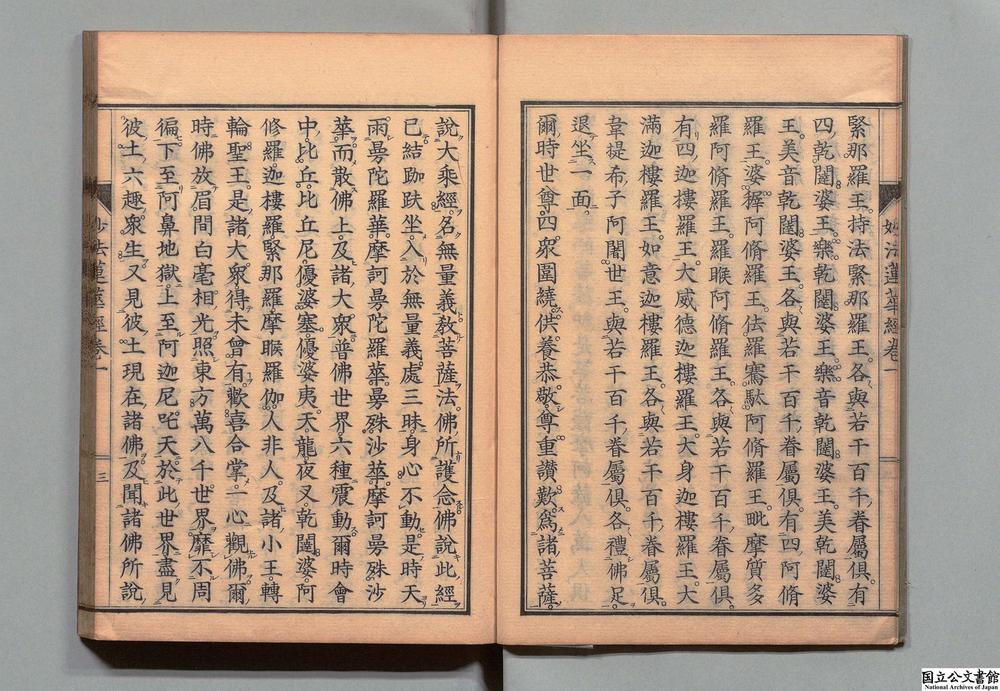 緊那羅王持法緊那羅王各與若干百千眷屬俱有
四乾闥婆王樂乾闥婆王樂音乾闥婆王美乾闥婆
王美音乾闥婆王各與若干百千眷屬俱有四阿脩
羅王婆稚阿脩羅王佉羅騫馱阿脩羅王毗摩質多
羅阿脩羅王羅睺阿脩羅王各與若干百千眷屬俱
有四迦樓羅王大威德迦樓羅王大身迦樓羅王大
滿迦樓羅王如意迦樓羅王各與若干百千眷屬俱
韋提希子阿闍世王與若干百千眷屬俱各禮佛足
退坐一面
爾時世尊四衆圍繞供養恭敬尊重讚歎爲諸菩薩
妙法蓮華經卷一
說大乘經名無量義教菩薩法佛所護念佛說此經
已結跏趺坐入於無量義處三昧身心不動是時天
雨曼陀羅華摩訶曼陀羅華曼殊沙華摩訶曼殊沙
華而散佛上及諸大衆普佛世界六種震動爾時會
中比丘比丘尼優婆塞優婆夷天龍夜叉乾闥婆阿
修羅迦樓羅緊那羅摩睺羅伽人非人及諸小王轉
輪聖王是諸大衆得未曾有歡喜合掌一心觀佛爾
時佛放眉間白毫相光照東方萬八千世界靡不周
徧下至阿鼻地獄上至阿迦尼吒天於此世界盡見
彼土六趣衆生又見彼土現在諸佛及聞諸佛所說
妙法蓮華經卷一
三
国立公文書館
National Archives of Japan